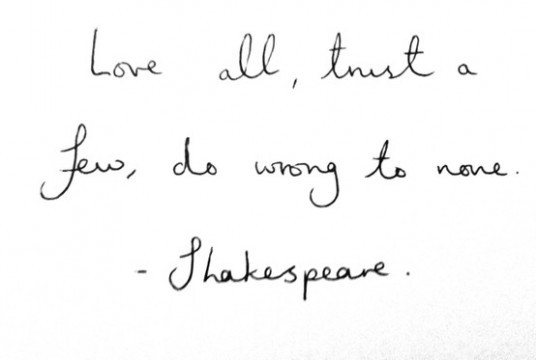 Love all, trust a
few, do wrong to none.
- Shakespeare.